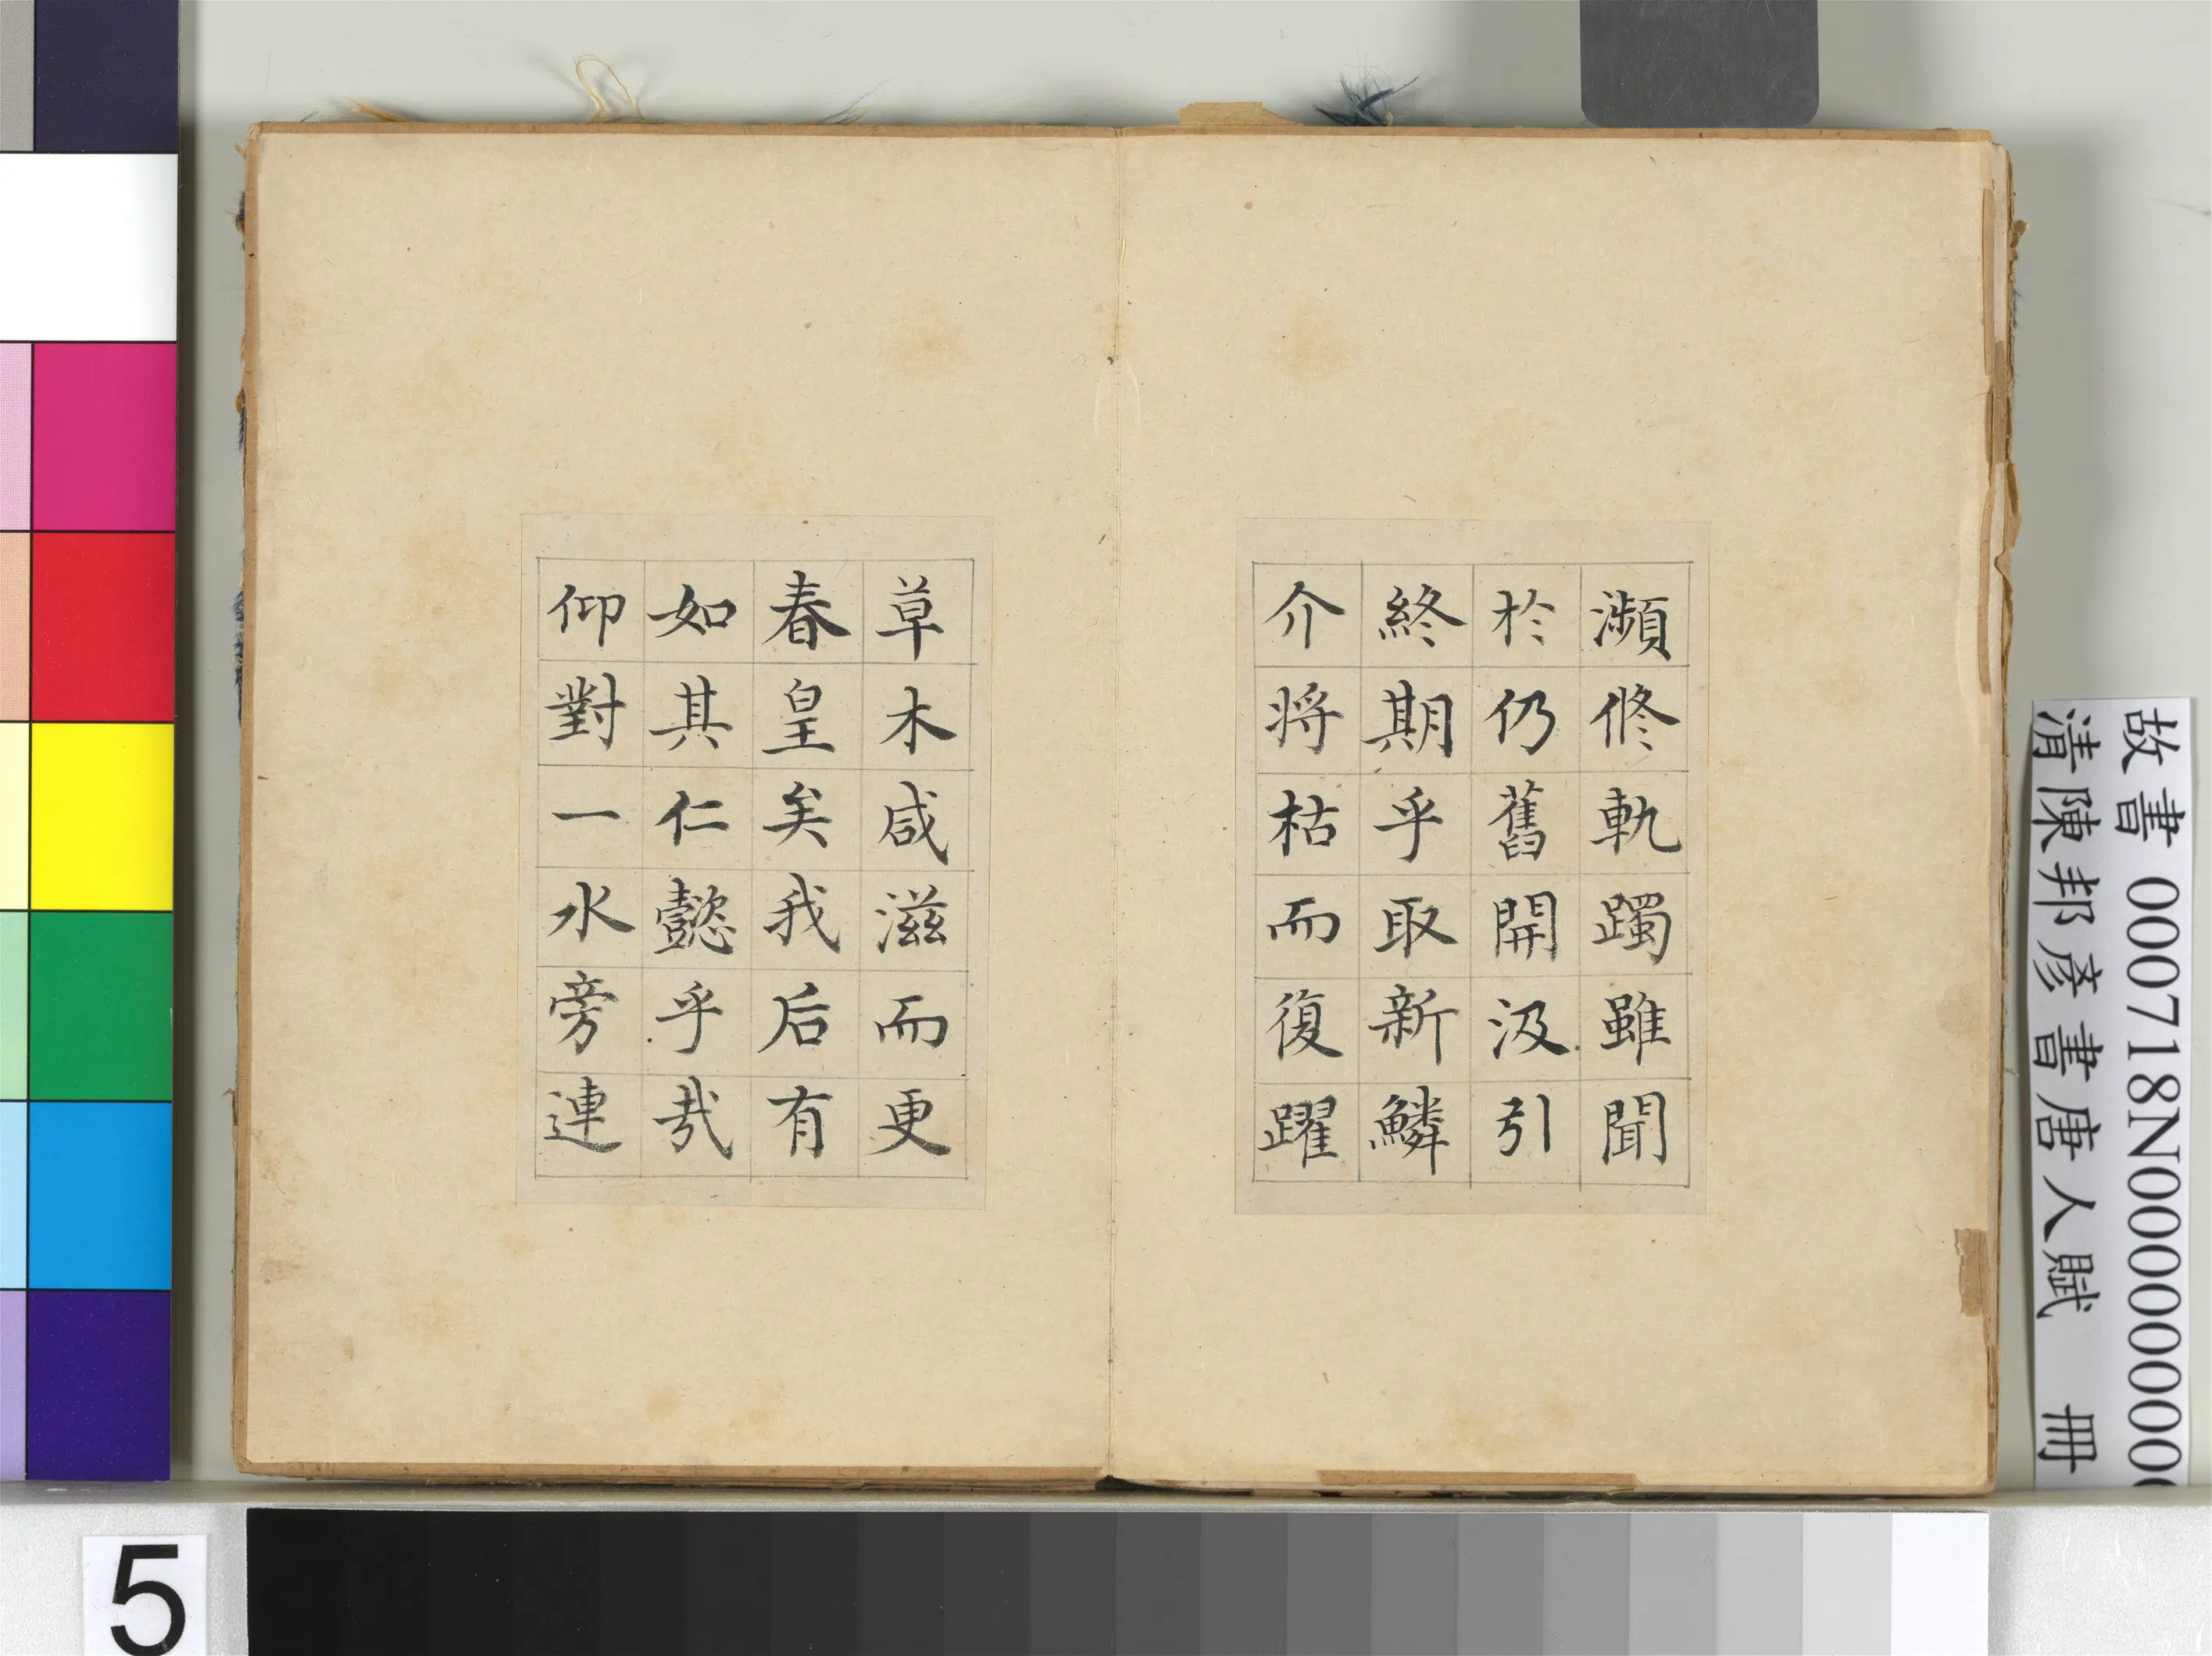 瀕修軌躅雖聞
於仍舊開汲引
終期乎取新鱗
介將枯而復躍
草木咸滋而更
春皇矣我后有
如其仁懿乎哉
仰對一水旁連
故書 000718N000000000
清陳邦彥書唐人賦 冊
5